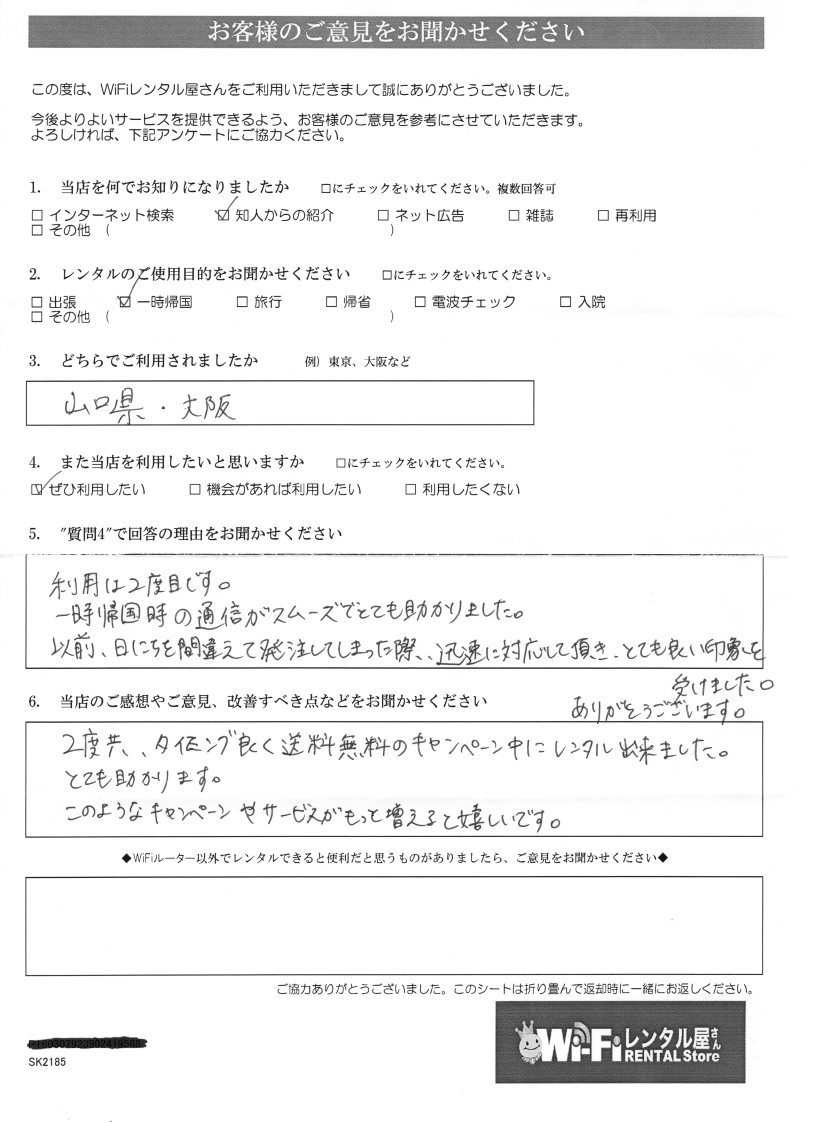 お客様のご意見をお聞かせください
この度は、WiFiレンタル屋さんをご利用いただきまして誠にありがとうございました。
今後よりよいサービスを提供できるよう、お客様のご意見を参考にさせていただきます。
よろしければ、下記アンケートにご協力ください。
1. 当店を何でお知りになりましたか □にチェックをいれてください。複数回答可
□ インターネット検索 ☑ 知人からの紹介 □ ネット広告 □ 雑誌 □ 再利用
□ その他 ( )
2. レンタルのご使用目的をお聞かせください □にチェックをいれてください。
□ 出張 ☑ 一時帰国 □ 旅行 □ 帰省 □ 電波チェック □ 入院
□ その他 ( )
3. どちらでご利用されましたか 例) 東京、大阪など
山口県・大阪
4. また当店を利用したいと思いますか □にチェックをいれてください。
☑ ぜひ利用したい □ 機会があれば利用したい □ 利用したくない
5. "質問4"で回答の理由をお聞かせください
利用は2度目です。
一時帰国時の通信がスムーズでとても助かりました。
以前、日にちを間違えて発注してしまった際、迅速に対応して頂き、とても良い印象を
受けました。
ありがとうございます。
6. 当店のご感想やご意見、改善すべき点などをお聞かせください
2度共、タイミング良く送料無料のキャンペーン中にレンタル出来ました。
とても助かります。
このようなキャンペーンやサービスがもっと増えると嬉しいです。
◆WiFiルーター以外でレンタルできると便利だと思うものがありましたら、ご意見をお聞かせください◆
ご協力ありがとうございました。このシートは折り畳んで返却時に一緒にお返しください。
SK2185
Wi-Fiレンタル屋さん
RENTAL Store